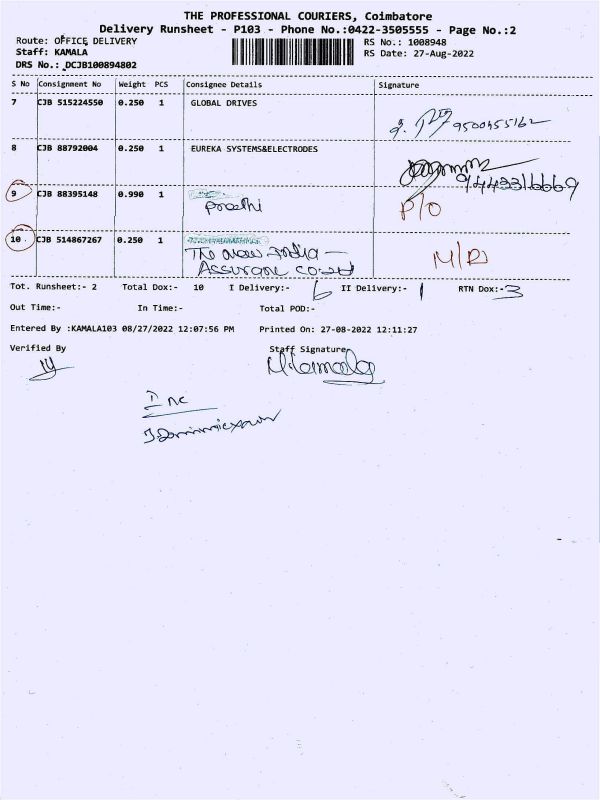 THE PROFESSIONAL COURIERS, Coimbatore
Delivery Runsheet - P103 - Phone No.:0422-3505555 - Page No.:2
Route: OFFICE DELIVERY
RS No.: 1008948
Staff: KAMALA
RS Date: 27-Aug-2022
DRS No.: DCJB100894802
S No Consignment No Weight PCS Consignee Details Signature
7 CJB 515224550 0.250 1 GLOBAL DRIVES
9500455162
8 CJB 88792004 0.250 1 EUREKA SYSTEMS&ELECTRODES
9443316669
9 CJB 88395148 0.990 1
Preethi P/O
10 CJB 514867267 0.250 1
The new India
Assurance co-Ltd
Tot. Runsheet:- 2 Total Dox:- 10 I Delivery:- 6 II Delivery:- 1 RTN Dox:- 3
Out Time:- In Time:- Total POD:-
Entered By :KAMALA103 08/27/2022 12:07:56 PM Printed On: 27-08-2022 12:11:27
Verified By Staff Signature